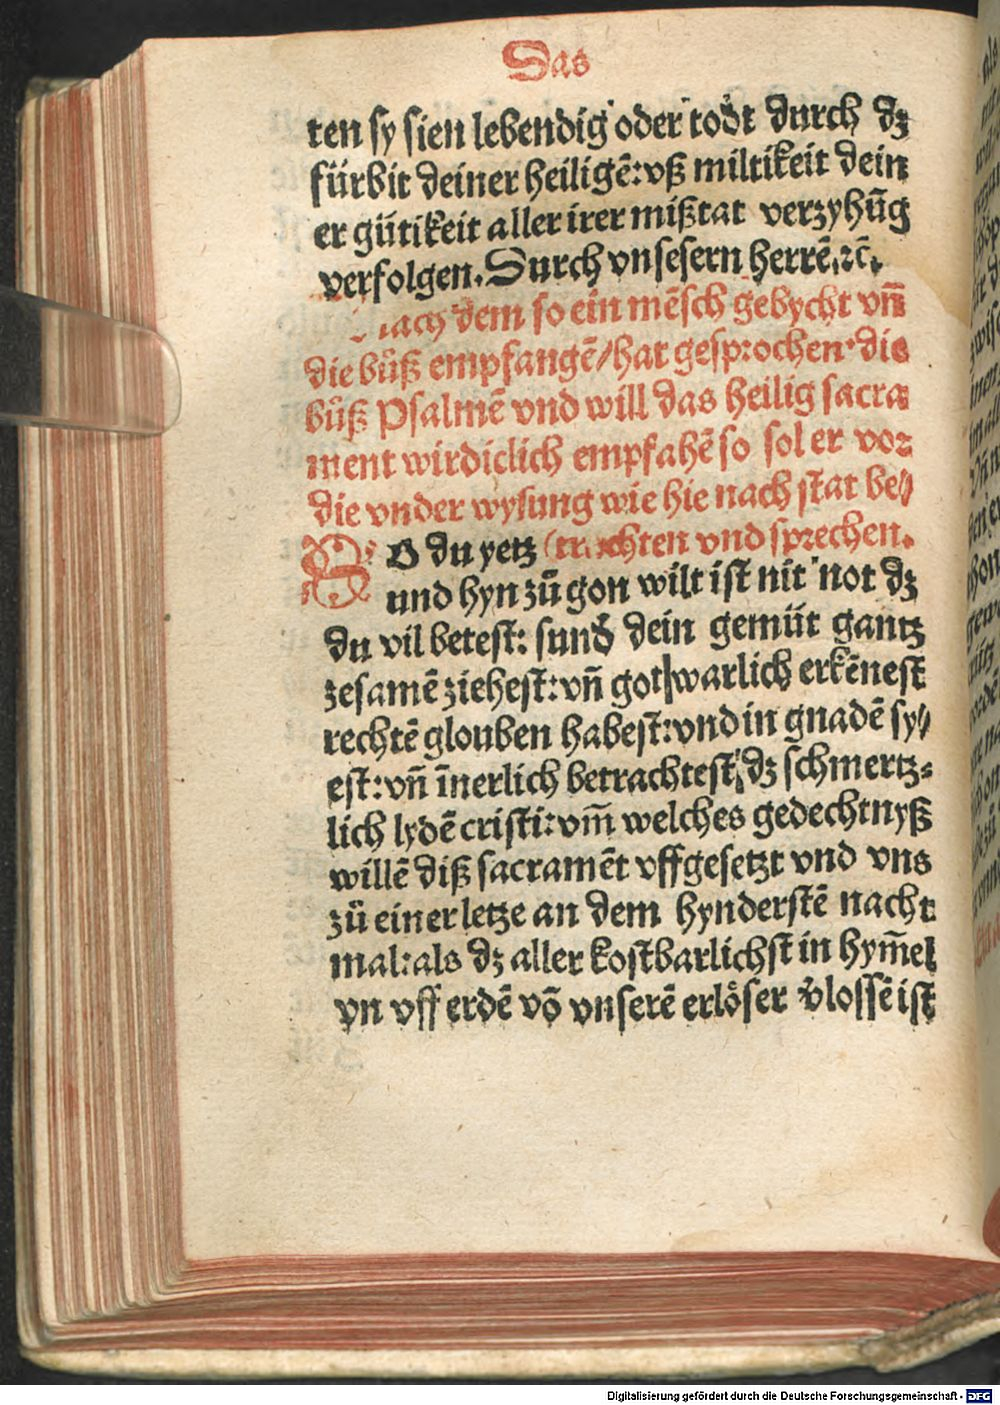 Das
ten sy sien lebendig oder todt durch dz
fürbit deiner heiligē: vß miltikeit dein
er gütikeit aller irer mißtat verzyhūg
verfolgen. Durch vnsesern herrē. ꝛc̄.
Nach dem so ein mēsch gebycht vn̄
die bůß empfangē/hat gesprochen die
bůß Psalmē vnd will das heilig sacra
ment wirdiclich empfahē so sol er vor
die vnder wysung wie hie nach stat be⸗
SO du yetz (trachten vnd sprechen.
und hyn zů gon wilt ist nit not dz
du vil betest: sund̕ dein gemüt gantz
zesamē ziehest: vn̄ got warlich erkēnest
rechtē glouben habest: vnd in gnadē sy⸗
est: vn̄ īnerlich betrachtest dz schmertz⸗
lich lydē cristi: vm̄ welches gedechtnyß
willē diß sacramēt vffgesetzt vnd vns
zů einer letze an dem hynderstē nacht
mal: als dz aller kostbarlichst in hym̄el
vn vff erdē vō vnserē erlöser v̕lossē ist
Digitalisierung gefördert durch die Deutsche Forschungsgemeinschaft - DFG